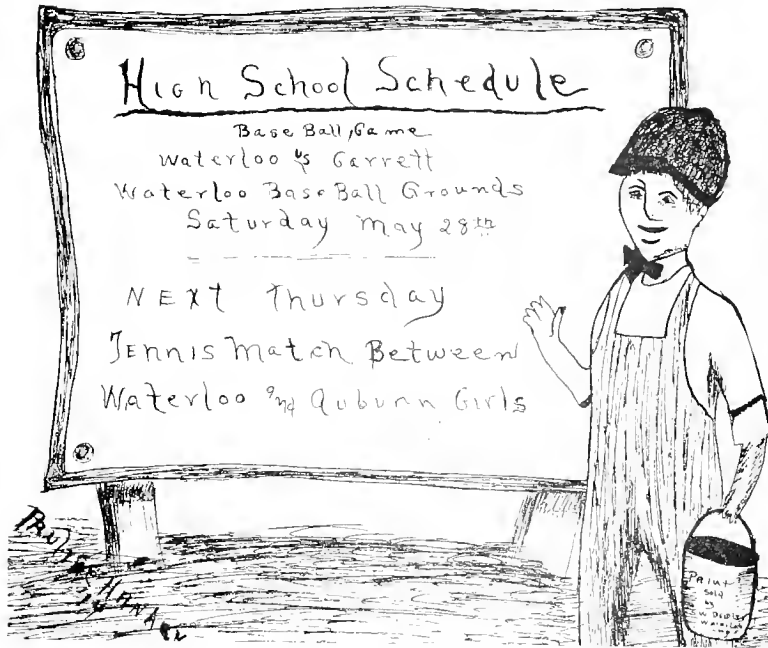 High School Schedule
Base Ball Game
Waterloo vs Garrett
Waterloo Base Ball Grounds
Saturday May 28th
NEXT Thursday
Tennis Match Between
Waterloo and Auburn Girls
Paint
Sold
by